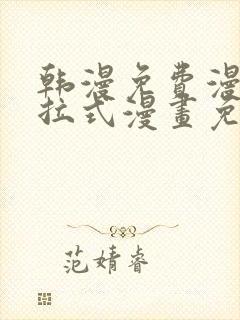 韩漫免费漫
拉式漫畫免
范婧睿